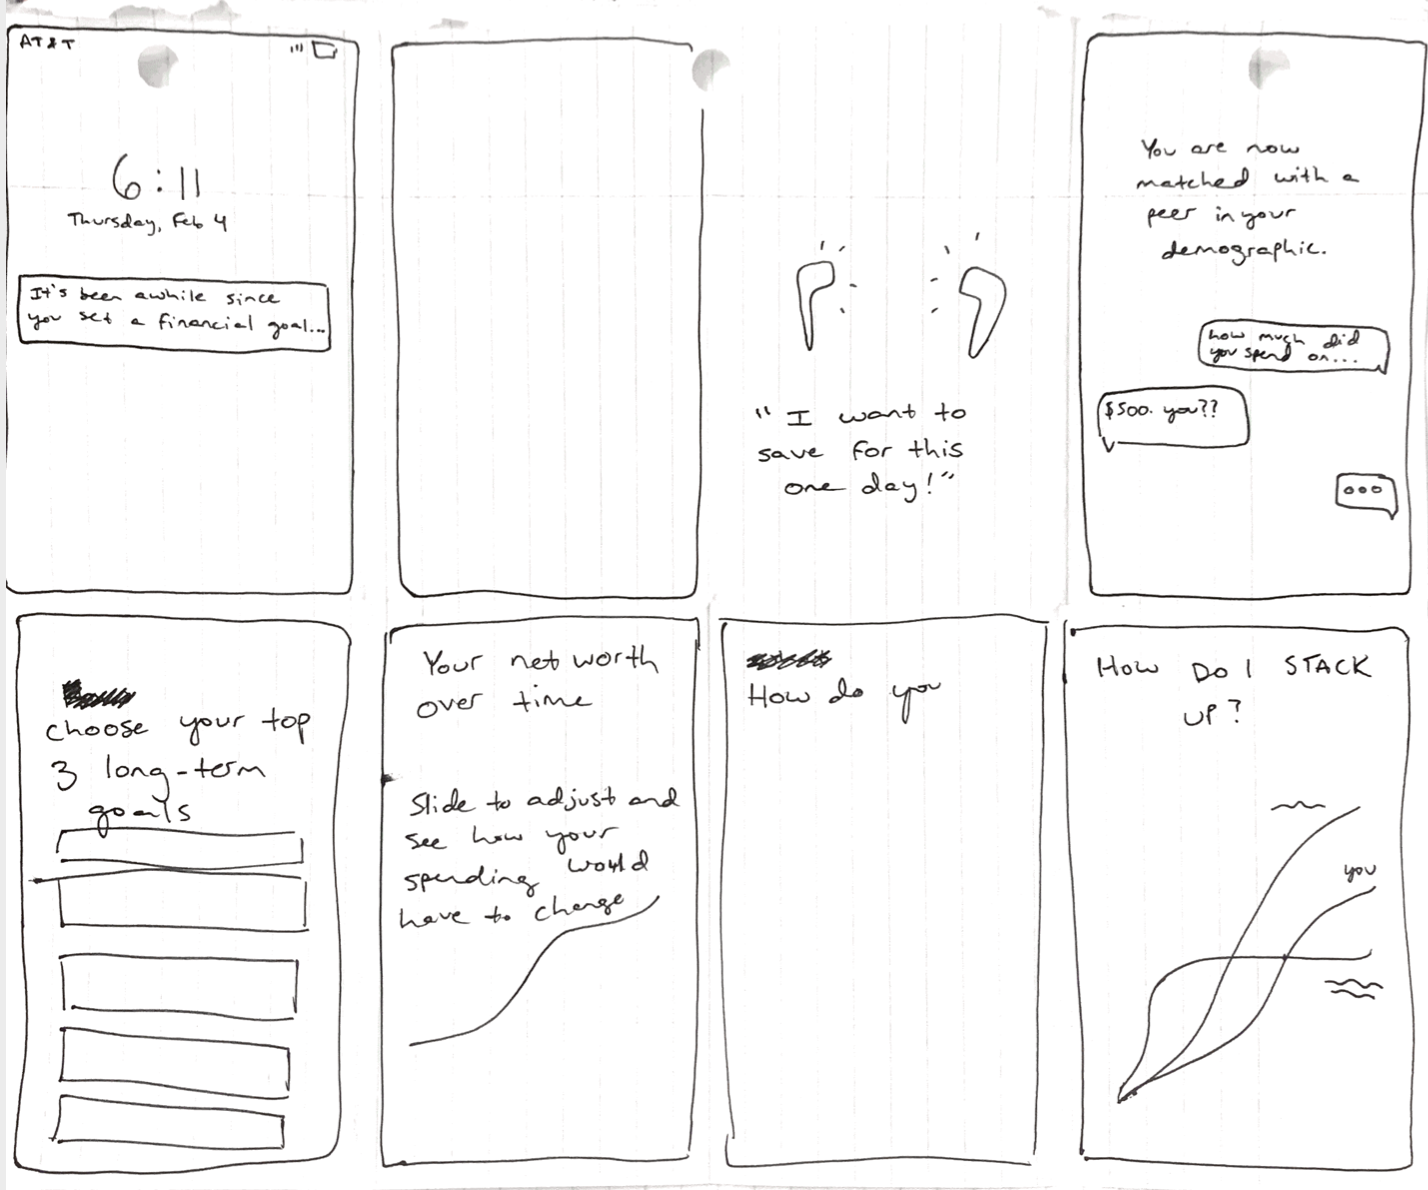 AT&T
6:11
Thursday, Feb 4
It's been awhile since
you set a financial goal...
"I want to
save for this
one day!"
You are now
matched with a
peer in your
demographic.
how much did
you spend on...
$500. you??
choose your top
3 long-term
goals
Your net worth
over time
Slide to adjust and
see how your
spending would
have to change
How do you
HOW DO I STACK
UP?
you